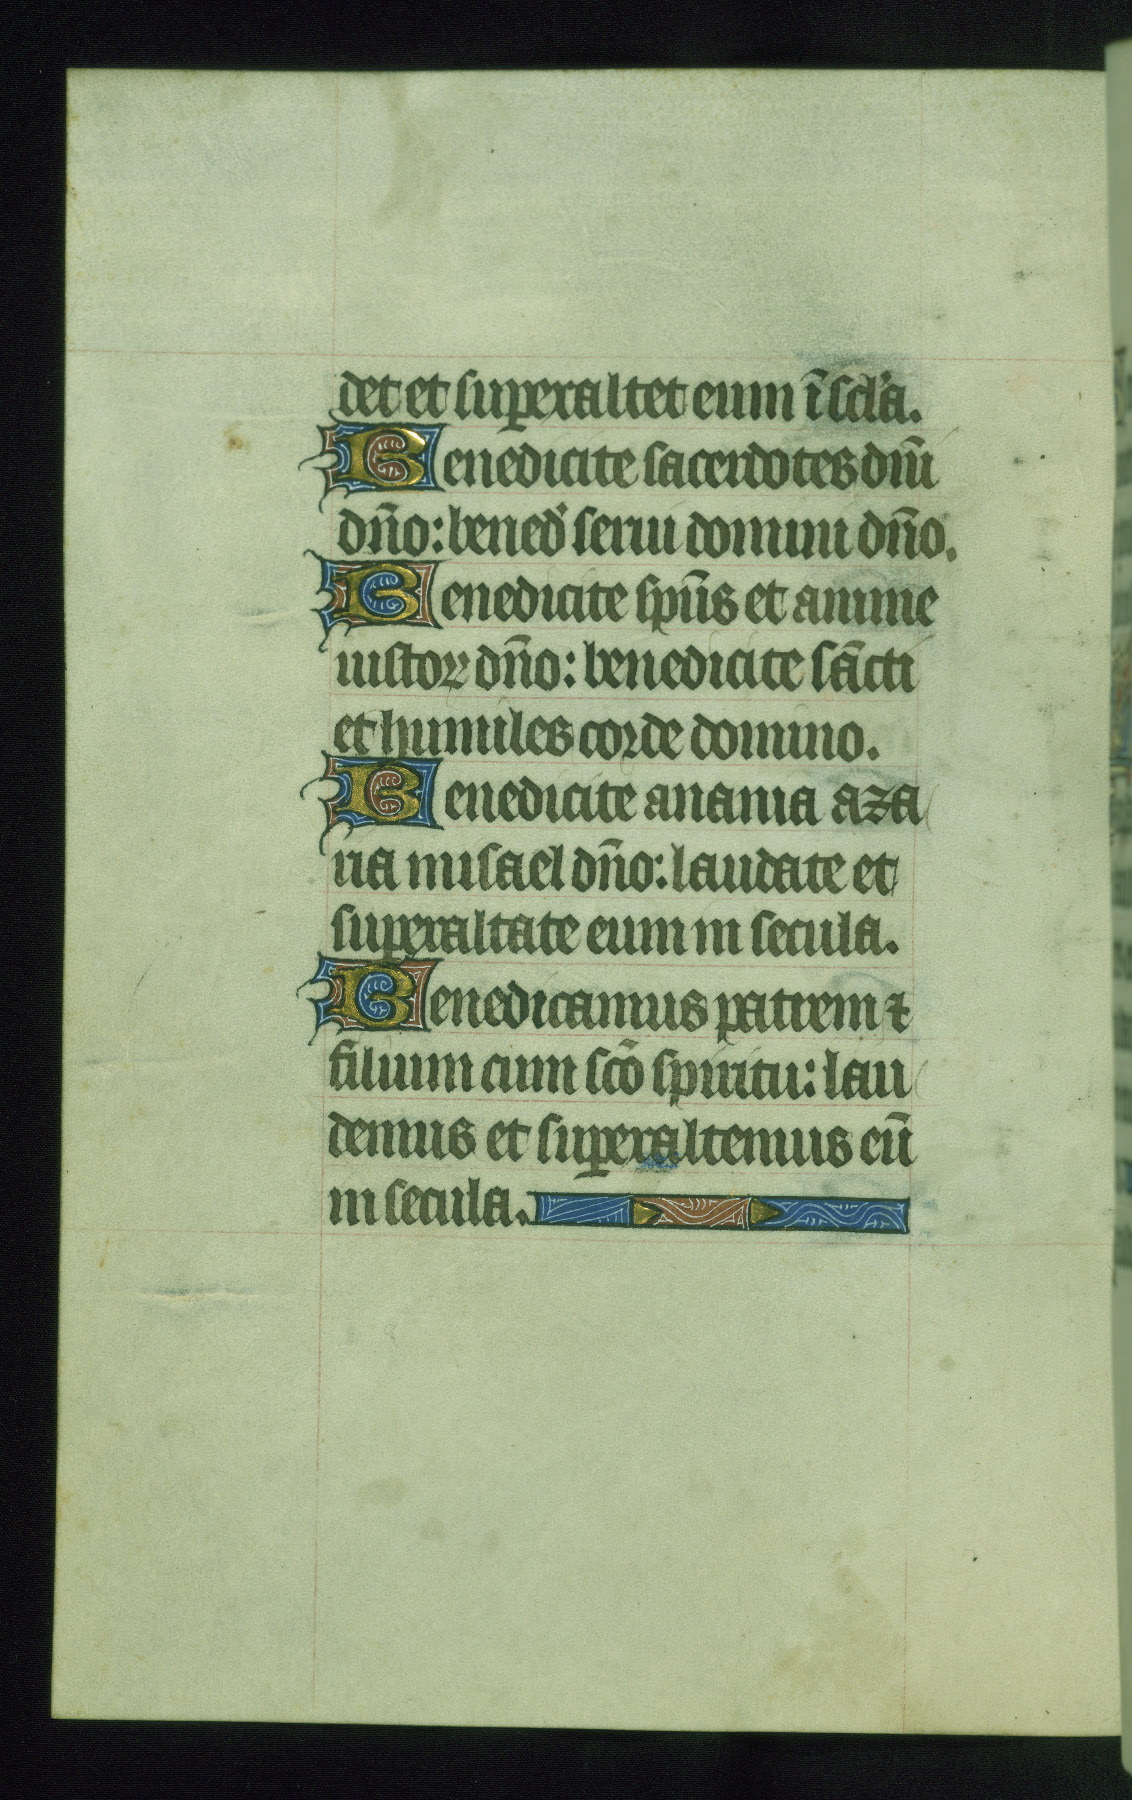 det et superaltet eum ī scl'a.
Benedicite sacerdotes dn̄i
dn̄o: bened' serui domini dn̄o.
Benedicite spūs et anime
iustoꝝ dn̄o: benedicite sāncti
et humiles corde domino.
Benedicite anania aza
ria misael dn̄o: laudate et
superaltate eum in secula.
Benedicamus patrem ⁊
filium cum scō spiritu: lau
demus et superaltemus eū
in secula.